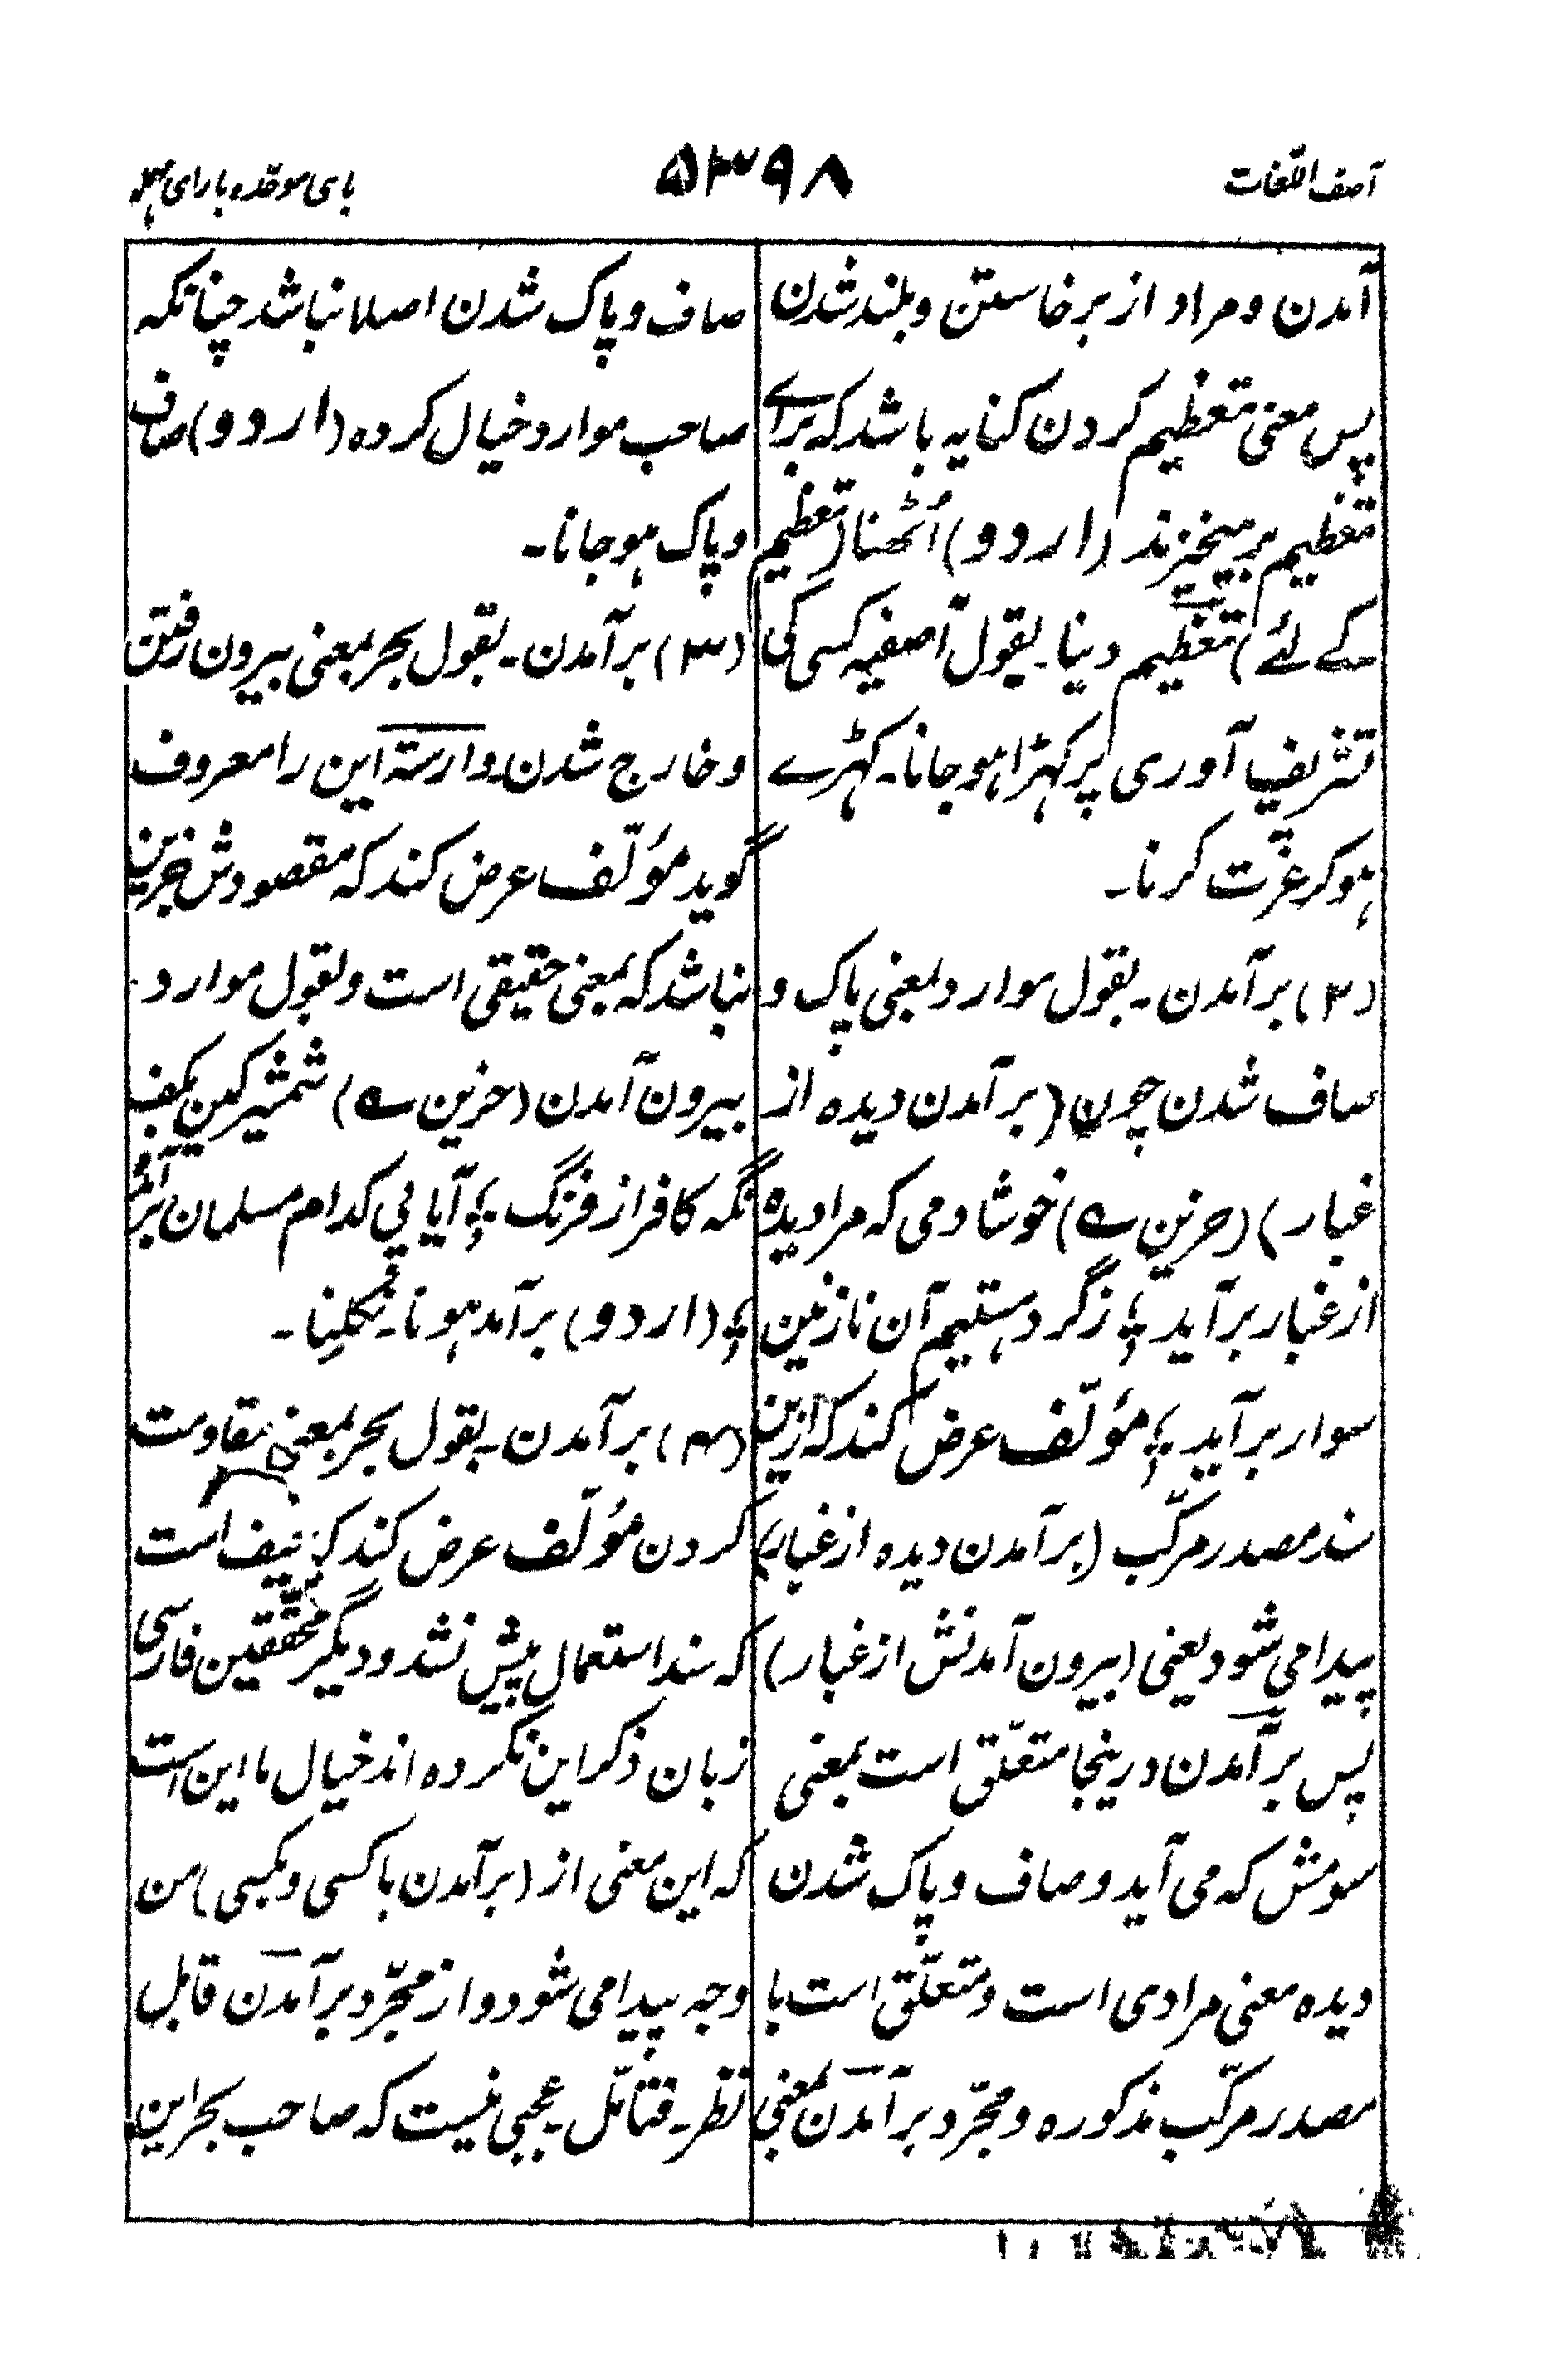 آصف اللّغات
۵۳۹۸
بای موحّده با رای مهمله
آمدن و مراد از برخاستن و بلند شدن
پس معنی تعظیم کردن کنایه باشد که برائے
تعظیم برمیخیزند (اردو) اُٹھنا (تعظیم
کے لئے) تعظیم دینا۔ بقول آصفیہ کسی کی
تشریف آوری پر کہڑا ہو جانا۔ کہڑے
ہو کر عزّت کرنا۔
(۲) برآمدن۔ بقول موارد بمعنی پاک و
صاف شدن چون (برآمدن دیده از
غبار) (حزین ے) خوشا دمی که مرا دیده
از غبار برآید ؛ ز گرد هستیم آن نازنین
سوار برآید ؛ مؤلّف عرض کند که ازین
سند مصدر مرکّب (برآمدن دیده از غبار)
پیدا می شود یعنی (بیرون آمدنش از غبار)
پس برآمدن درینجا متعلّق است بمعنی
سومش که می آید و صاف و پاک شدن
دیده معنی مرادی است و متعلّق است با
مصدر مرکّب مذکوره و مجرّد برآمدن بمعنی
صاف و پاک شدن اصلا نباشد چنانکه
صاحب موارد خیال کرده (اردو) صاف
و پاک ہو جانا۔
(۳) برآمدن۔ بقول بحر بمعنی بیرون رفتن
و خارج شدن وارسته این را معروف
گوید مؤلّف عرض کند که مقصودش جزین
نباشد که بمعنی حقیقی است و بقول موارد۔
بیرون آمدن (حزین ے) شمشیر کین بکف
نگه کافر از فرنگ ؛ آیا پی کدام مسلمان برآمد
؛ (اردو) برآمد ہونا۔ نکلنا۔
(۴) برآمدن۔ بقول بحر بمعنی مقاومت
کردن مؤلّف عرض کند که حیف است
که سند استعمال پیش نشد و دیگر محققین فارسی
زبان ذکر این نکرده اند خیال ما این است
که این معنی از (برآمدن با کسی و بکسی) من
وجه پیدا می شود و از مجرّد برآمدن قابل
نظر۔ فتأمّل۔ عجبی نیست که صاحب بحر این